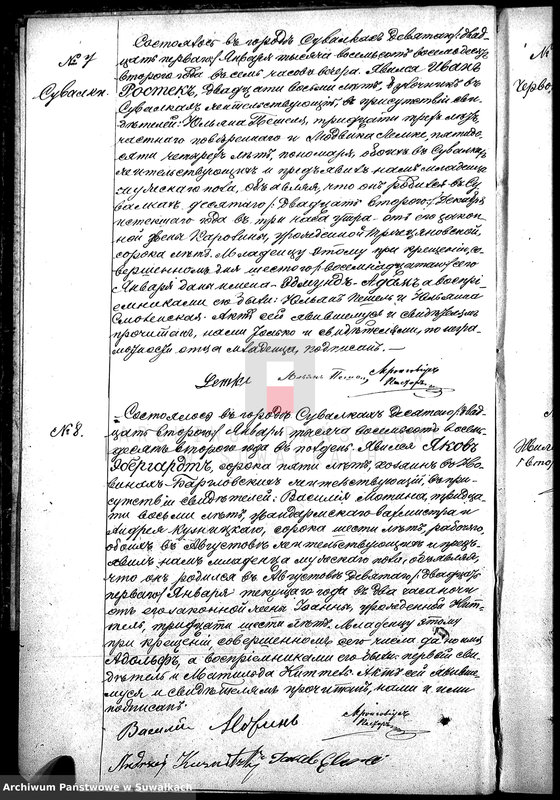 № 7
Сувалки.
Состоялось въ городѣ Сувалкахъ девятаго/двад-
цать перваго/ Января тысяча восемьсотъ восемьдесятъ
втораго года въ семь часовъ вечера. Явился Иванъ
Ростекъ, двадцати восьми лѣтъ, въ
Сувалкахъ жительствующій, въ присутствіи сви-
дѣтелей: Юльяна Петеля, тридцати трехъ лѣтъ,
частнаго повѣреннаго и Людвика пятиде-
сяти четырехъ лѣтъ, пономаря, обоихъ въ Сувалкахъ
жительствующихъ и предъявилъ намъ младенца
мужескаго пола, объявляя, что онъ родился въ Су-
валкахъ десятаго/двадцать втораго/ Декабря
истекшаго года въ три часа утра отъ его закон-
ной жены Каролины, урожденной
сорока лѣтъ. Младенцу этому при крещеніи, со-
вершенномъ дня шестаго/восемнадцатаго/ сего
Января дано имена Эдмундъ-Адамъ, а воспрі-
емниками его были: Юльянъ Петель и Юльянна
Смоленская. Актъ сей явившемуся и свидѣтелямъ
прочитанъ, нами только и свидѣтелями, по неграм-
мотности отца младенца, подписанъ. —
№ 8.
Состоялось въ городѣ Сувалкахъ десятаго/двад-
цать втораго/ Января тысяча восемьсотъ восемь-
десять втораго года въ полдень. Явился Яковъ
Эбергардтъ, сорока пяти лѣтъ, въ Но-
винахъ-Барглов­скихъ жительствующій, въ при-
сутствіи свидѣтелей: Василія Мотина, тридца-
ти восьми лѣтъ, жандармскаго вахмистра и
Андрея Кузницкаго, сорока шести лѣтъ, рабочаго,
обоихъ въ Августовѣ жительствующихъ и предъ-
явилъ намъ младенца мужескаго пола, объявляя,
что онъ родился въ Августовѣ девятаго/двадцать
перваго/ Января текущаго года въ два часа ночи
отъ его законной жены Іоанны, урожденной Кит-
тель, тридцати шести лѣтъ. Младенцу этому
при крещеніи совершенномъ сего числа дано имя
Адольфъ, а воспріемниками его были: первый сви-
дѣтель и Матильда Киттель. Актъ сей явивше-
муся и свидѣтелямъ прочитанъ, нами и ими
подписанъ.
Василій Мотинъ
Archiwum Państwowe w Suwałkach